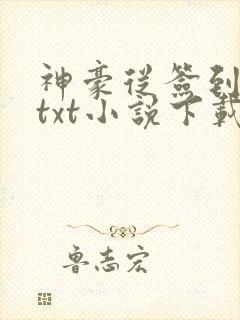 神豪從簽到
txt小說下載
魯志宏